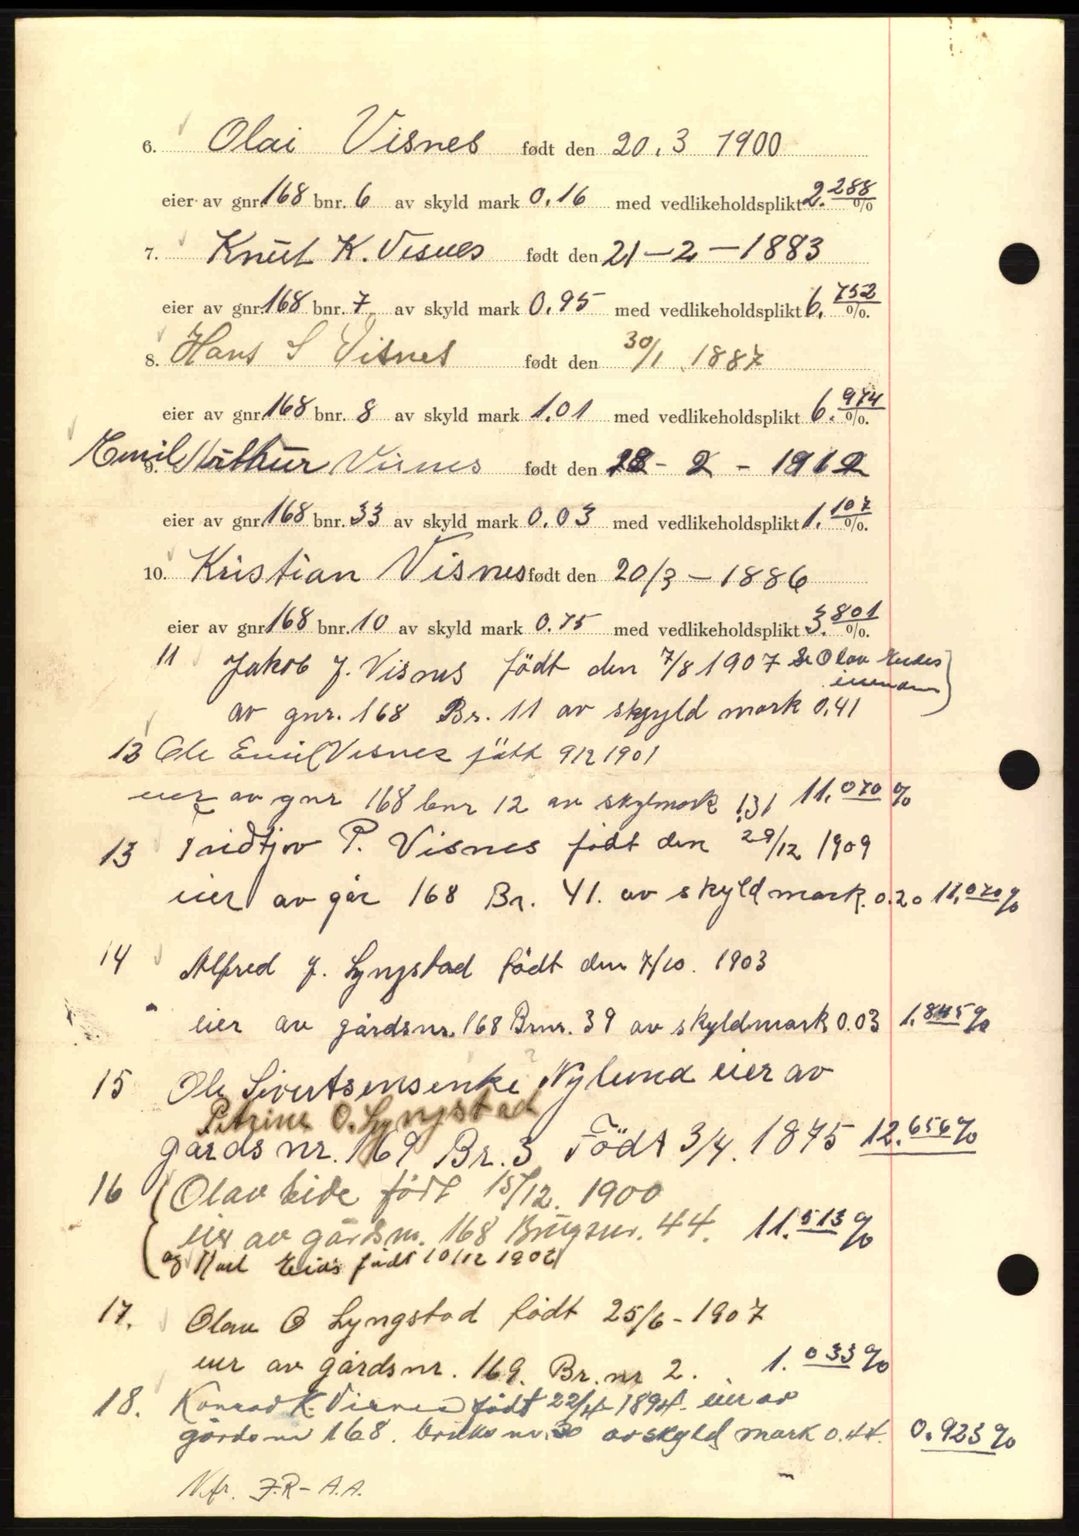 6. Olai Visnes født den 20.3 1900
eier av gnr. 168 bnr. 6 av skyld mark 0.16 med vedlikeholdsplikt 2.288 %
7. Knut K. Visnes født den 21-2-1883
eier av gnr. 168 bnr. 7 av skyld mark 0.95 med vedlikeholdsplikt 6.752 %.
8. Hans S Visnes født den 30/1 1887
eier av gnr. 168 bnr. 8 av skyld mark 1.01 med vedlikeholdsplikt 6.974 %.
9. Emil Arthur Visnes født den 28-2-1912
eier av gnr. 168 bnr. 33 av skyld mark 0.03 med vedlikeholdsplikt 1.107 %.
10. Kristian Visnes født den 20/3-1886
eier av gnr. 168 bnr. 10 av skyld mark 0.75 med vedlikeholdsplikt 3.801 %.
11 Jakob J. Visnes født den 7/8 1907 Se Olav Eides
av gnr. 168 Br. 11 av skyld mark 0.41
Ole Emil Visnes født 9/2 1901
eier av gnr 168 bnr 12 av skylmark 1.31 11.070 %
13 Fridtjov P. Visnes født den 29/12 1909
eier av går 168 Br. 41. av skyld mark. 0.20 11.070 %
14 Alfred J. Lyngstad født den 7/10. 1903
eier av gårdsnr. 168 Brnr. 39 av skyldmark 0.03 1.845 %
15 Ole Sivertsens enke Nylund eier av
Petrine O. Lyngstad
gårdsnr. 169 Br. 3 Født 3/4. 1875 12.656 %
16 Olav Eide født 15/12. 1900
eier av gårdsnr. 168 Brugsnr. 44. 11.513 %
og Marl Eides født 10/12 1902
17. Olav O Lyngstad født 25/6-1907
eier av gårdsnr. 169. Br. nr 2. 1.033 %
18. Konrad K. Visnes født 22/4-1894. eier av
gårdsnr 168. bruksnr. 30 av skyld mark 0.44. 0.923 %
N.fr. J.R-A.A.